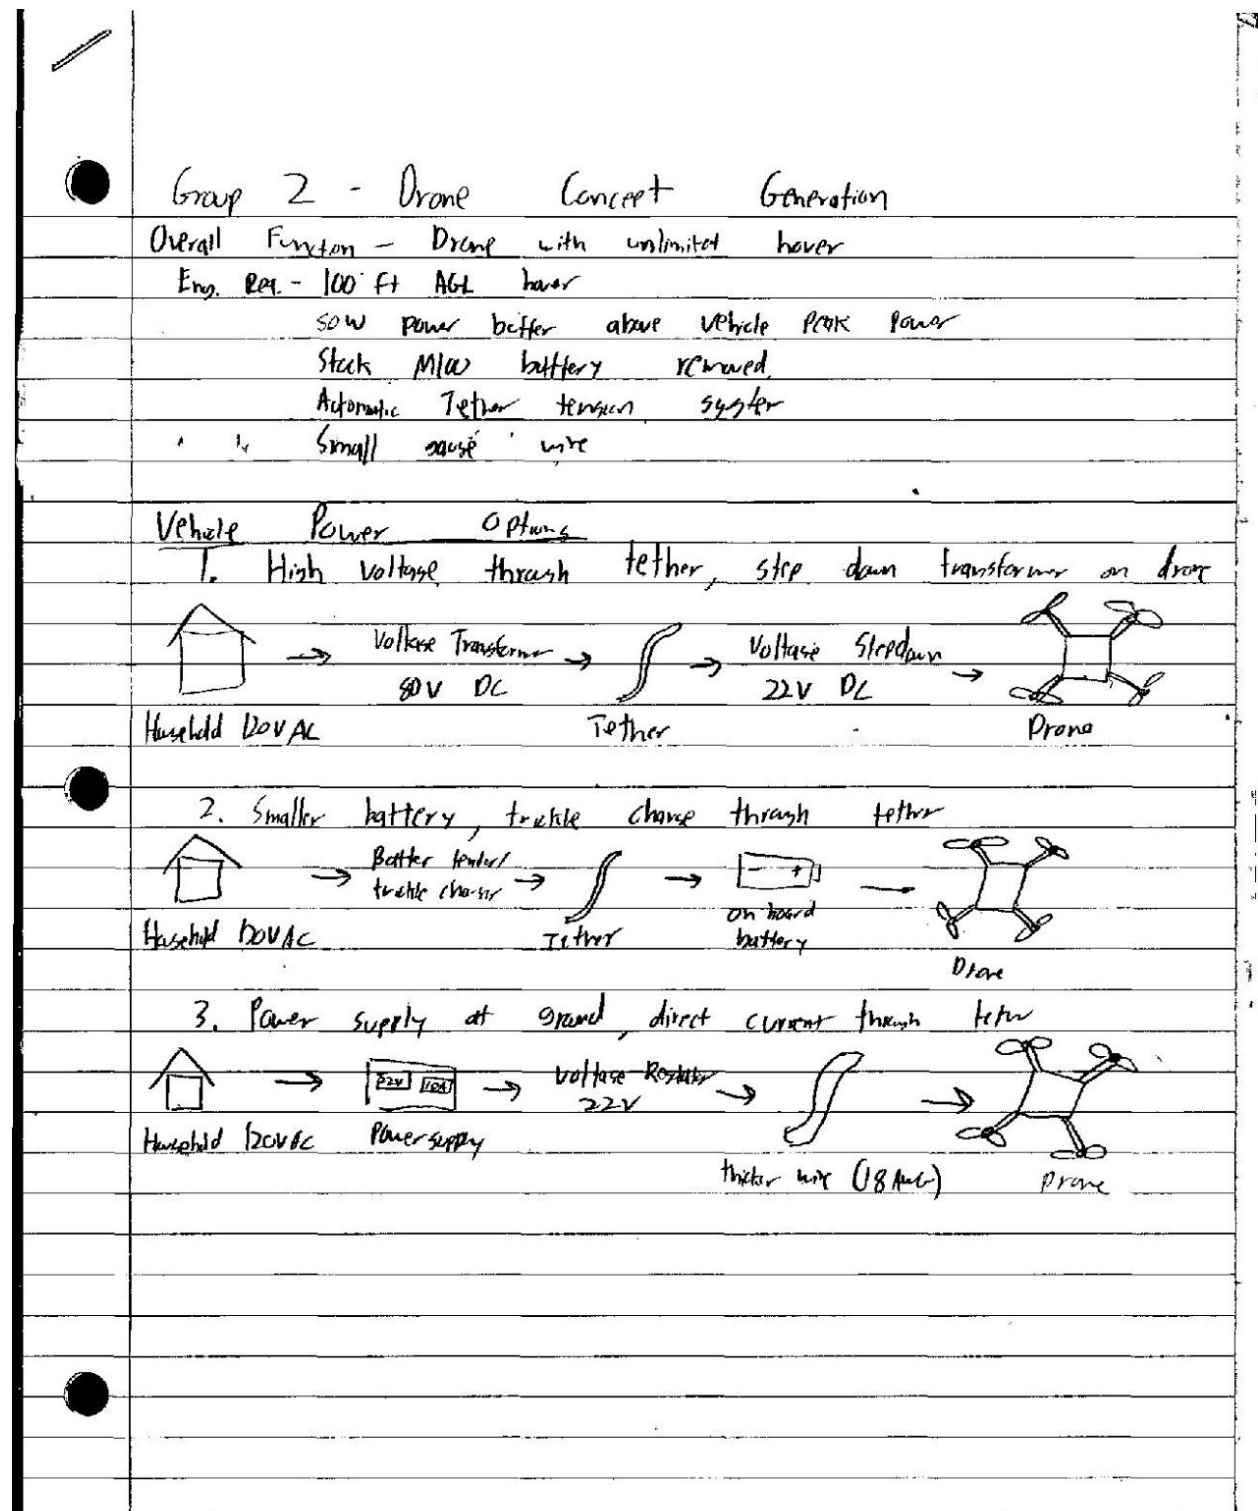 Group 2 - Drone Concept Generation
Overall Function - Drone with unlimited hover
Eng. Req. - 100 ft AGL hover
50W power buffer above vehicle peak power
Stock M100 battery removed
Automatic Tether tension system
Small gauge wire
Vehicle Power Options
1. High voltage through tether, step down transformer on drone
Voltage Transformer Voltage Stepdown
80V DC 22V DC
Household 120V AC Tether Drone
2. Smaller battery, trickle charge through tether
Batter tender/
trickle charger - +
on board
Household 120VAC Tether battery
Drone
3. Power supply at ground, direct current through tether
22V 10A Voltage Regulator
22V
Household 120VAC Power supply
thicker wire (18 AWG) Drone